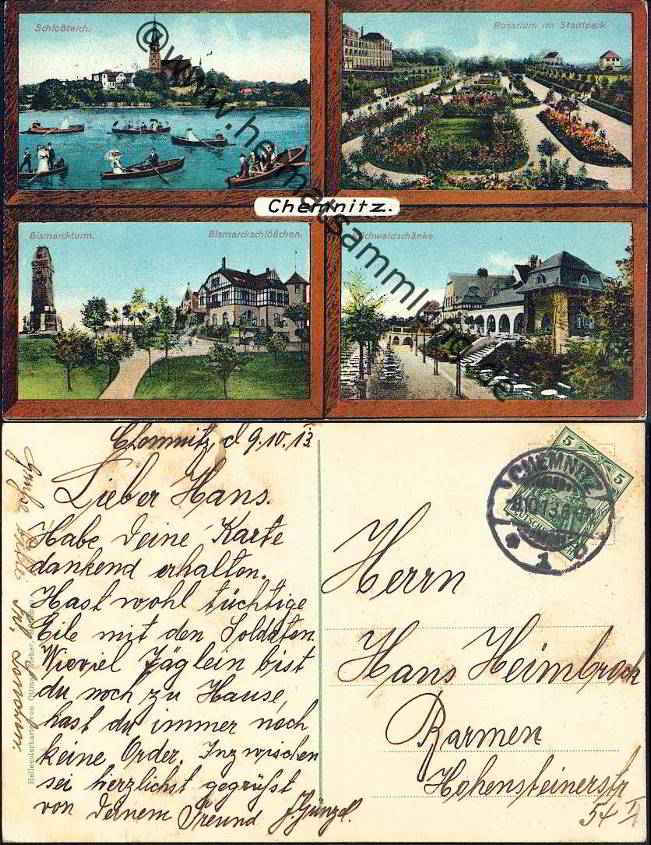 Schloßteich.
Rosarium im Stadtpark.
Chemnitz.
Bismarckturm.
Bismarckschlößchen.
chwaldschänke.
©www.heimatsammlung.de
Chemnitz, d 9.10.13
Lieber Hans.
Habe deine Karte
dankend erhalten.
Hast wohl tüchtige
Eile mit den Soldaten
Wieviel Täglein bist
du noch zu Hause,
hast du immer noch
keine Order. Inzwischen
sei herzlichst gegrüßt
von deinem Freund J. Günzel.
5
CHEMNITZ
1
Herrn
Hans Heimbroch
Barmen
Hohensteinerstr
54 I